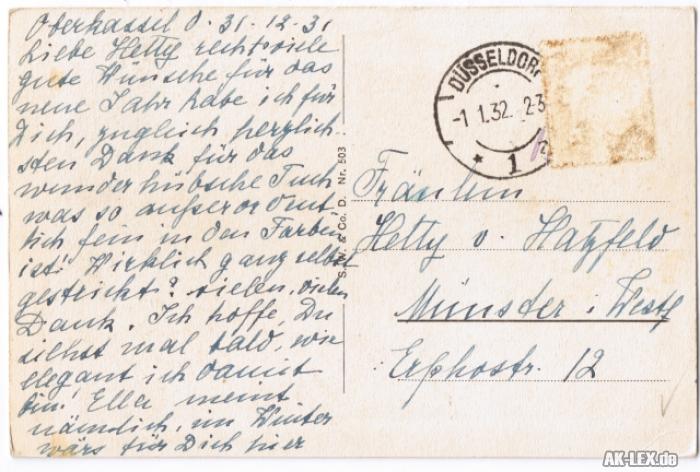 Oberkassel d. 31.12.31
Liebe Hetty recht viele
gute Wünsche für das
neue Jahr habe ich für
Dich, zugleich herzlich-
sten Dank für das
wunderhübsche Tuch
was so außerordent
lich fein in den Farben
ist! Wirklich ganz selbst
gestrickt? Vielen, vielen
Dank. Ich hoffe, Du
siehst mal bald, wie
elegant ich damit
bin. Ella meint
nämlich, im Winter
wärs für Dich hier
S. W. & Co. D. Nr. 503
DÜSSELDORF
-1 1.32. 2-3
* 1
Fräulein
Hetty v. Hatzfeld
Münster i. Westf
Erphostr. 12
AK-LEX.de